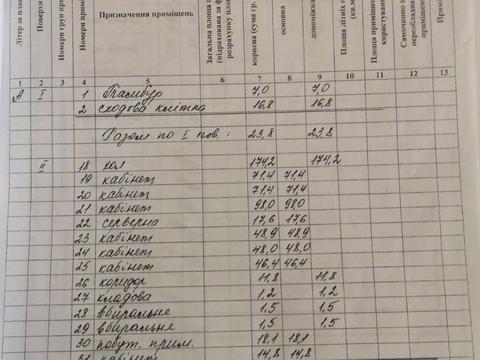 Літер за план
Поверхи
Номери груп при
Номери примі
Призначення приміщень
Загальна площа
(відрахована за ф
розрахунку площ
корисна (сума гр.
основна
допоміжна
Площа літніх
(кв.м
Площа приміщен
користуван
Самочинно за
переобладна
приміщен
Примі
1 2 3 4 5 6 7 8 9 10 11 12 13
А І 1 Тамбур 7,0 7,0
2 сходова клітка 16,8 16,8
Разом по І пов.: 23,8 23,8
ІІ 18 хол 174,2 174,2
19 кабінет 71,4 71,4
20 кабінет 71,4 71,4
21 кабінет 98,0 98,0
22 серверна 17,6 17,6
23 кабінет 48,9 48,9
24 кабінет 48,0 48,0
25 кабінет 46,4 46,4
26 коридор 11,8 11,8
27 кладова 1,2 1,2
28 вбиральне 1,5 1,5
29 вбиральне 1,5 1,5
30 побут. прим. 18,1 18,1
31 кабінет 14,8 14,8